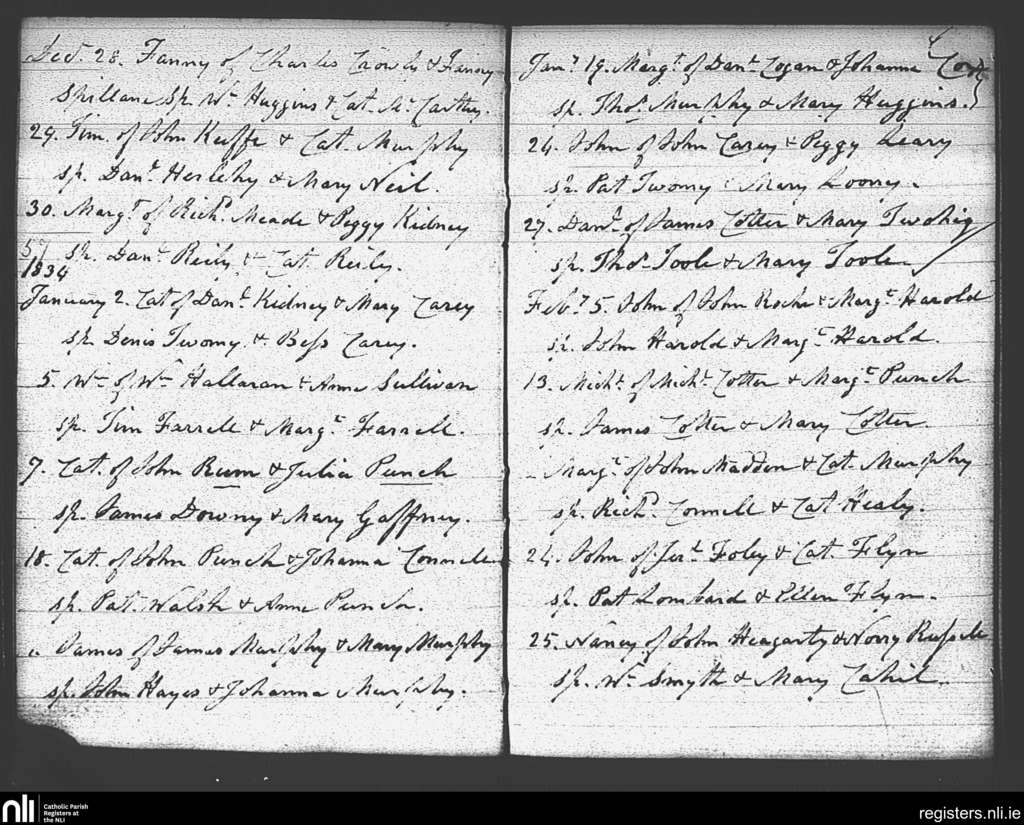 Decr. 28. Fanny of Charles Crowly & Fanny
Spillane Sp. Wm Huggins & Cat. Mc Carthy.
29. Tim. of John Keiffe & Cat. Murphy
sp. Danl. Herlihy & Mary Neil.
30. Margt. of Richd. Meade & Peggy Kidney
57 sp. Danl. Reily & Cat. Reily.
1834
January 2. Cat of Danl. Kidney & Mary Carey
sp. Denis Twomy. & Bess Carey.
5. Wm of Wm Hallaran & Anne Sullivan
sp. Tim Farrell & Margt. Farrell.
7. Cat. of John Rum & Julia Punch
sp. James Downy & Mary Gaffney.
18. Cat. of John Punch & Johanna Connell
sp. Pat. Walsh & Anne Punch.
" James of James Murphy & Mary Murphy
sp. John Hayes & Johanna Murphy.
Jany. 19. Margt. of Danl. Cogan & Johanna
sp. Thos. Murphy & Mary Huggins.
24. John of John Carey & Peggy Leary
sp. Pat Twomy & Mary Loony.
27. Danl. of James Cotter & Mary Twohig
sp. Thos. Toole & Mary Toole
Feby. 5. John of John Roche & Margt. Harold
sp. John Harold & Margt. Harold.
13. Michl. of Michl. Cotter & Margt. Punch
sp. James Cotter & Mary Cotter.
Margt. of John Madden & Cat. Murphy
sp. Richd. Connell & Cat Healy.
24. John of Jert. Foley & Cat. Flyn
sp. Pat Lombard & Ellen Flyn.
25. Nancy of John Heagarty & Norry Russell
sp. Wm. Smyth & Mary Cahil.
nli
Catholic Parish
Registers at
the NLI
registers.nli.ie